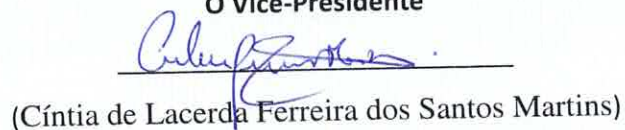 O Vice-Presidente
(Cíntia de Lacerda Ferreira dos Santos Martins)